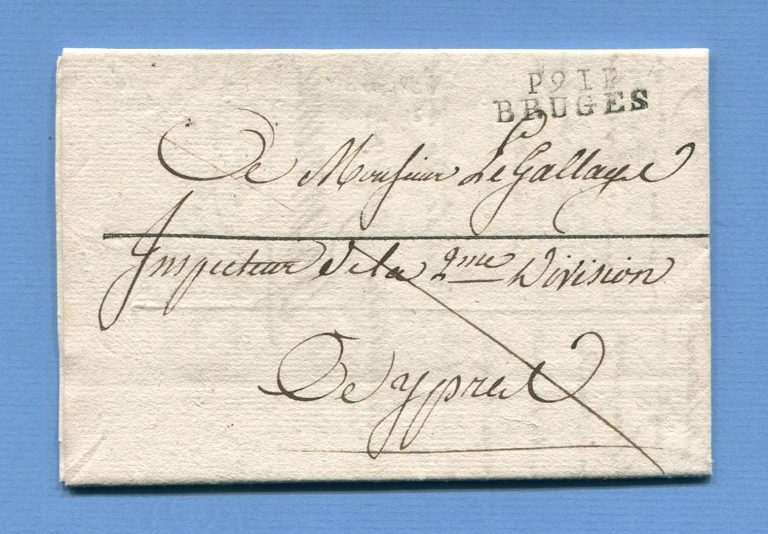 P91P
BRUGES
De Monsieur Le Gallaye
Inspecteur de la 2me Division
De ypres